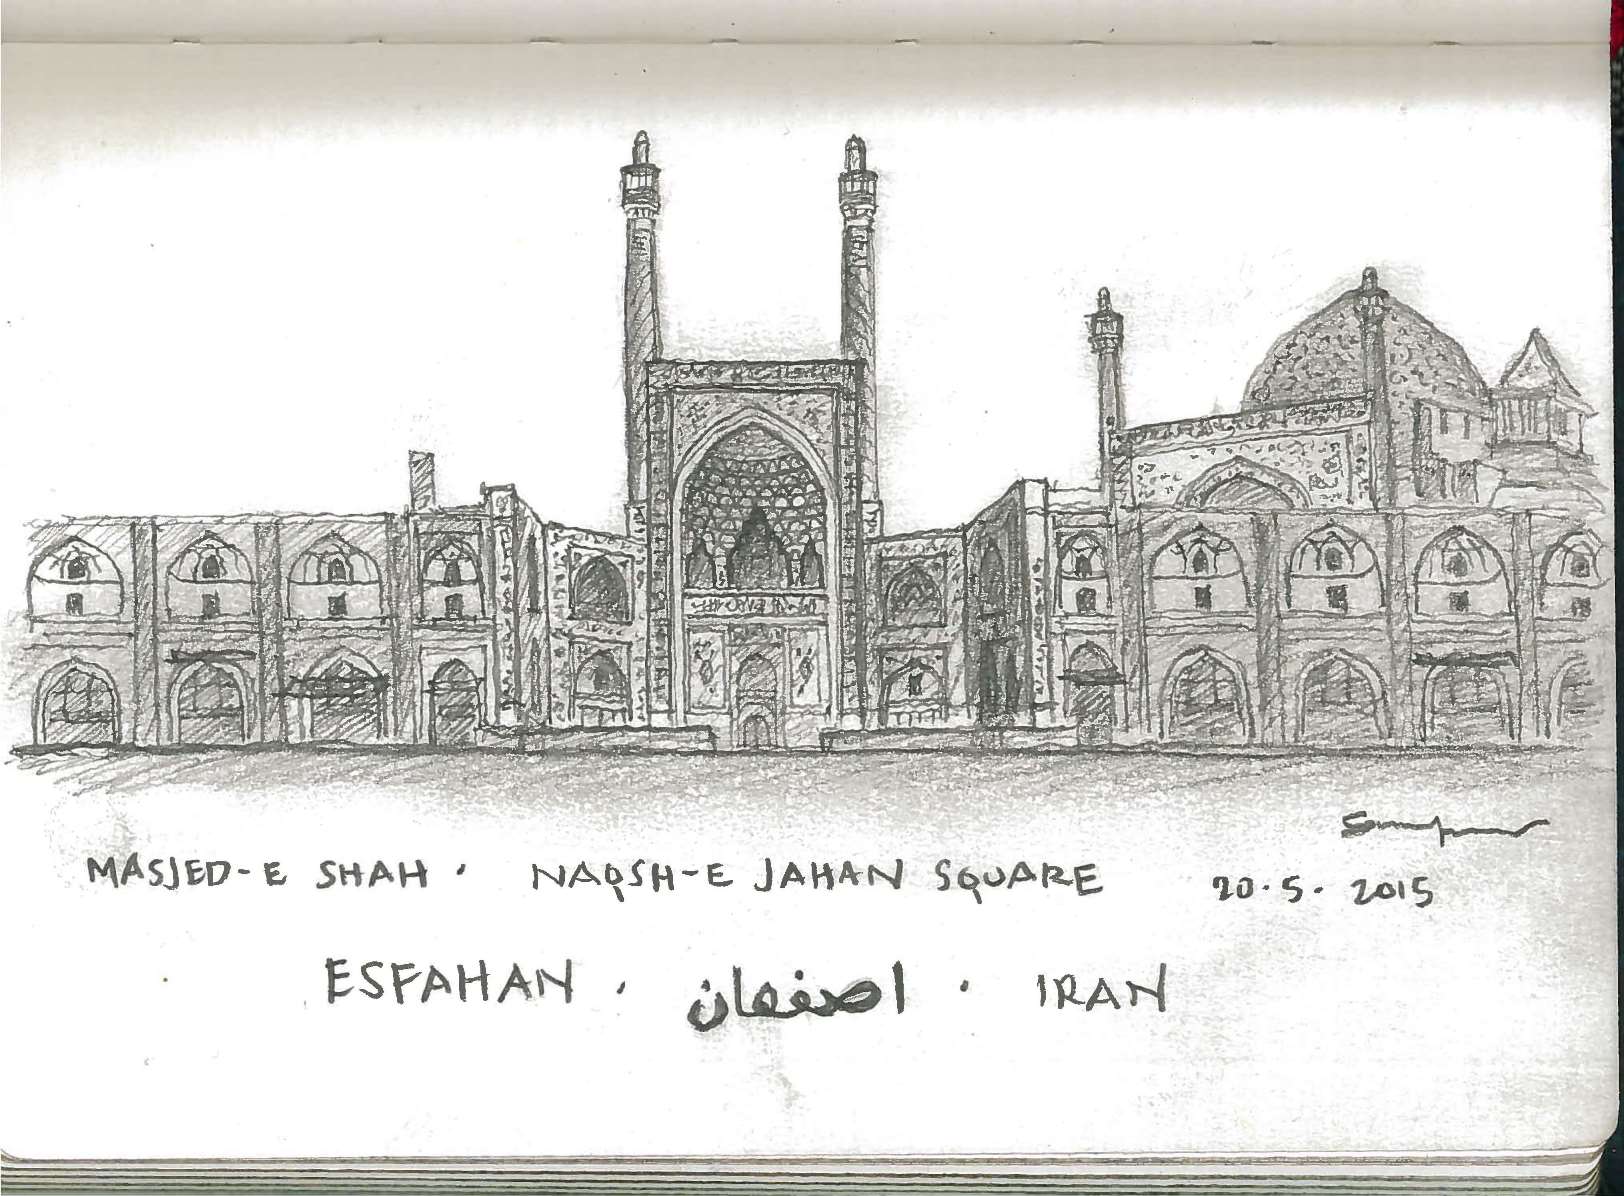 MASJED-E SHAH · NAQSH-E JAHAN SQUARE 20·5·2015
ESFAHAN · اصفهان · IRAN